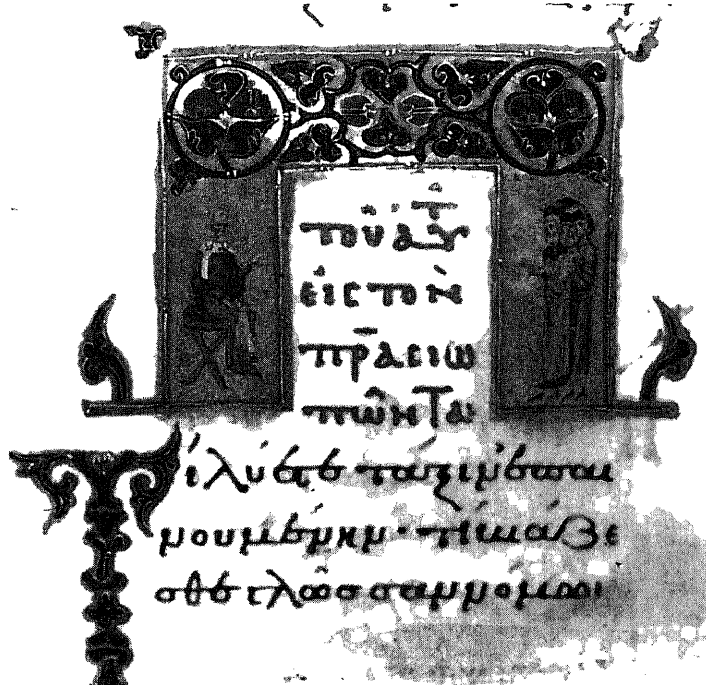 τοῦ αὐτοῦ
εἰς τὸν
πρᾱσιω
πῶντα
Τί λύετε τάξιν ἐπαι
νουμένην· τί βιάζε
σθε γλῶσσαν νόμωι